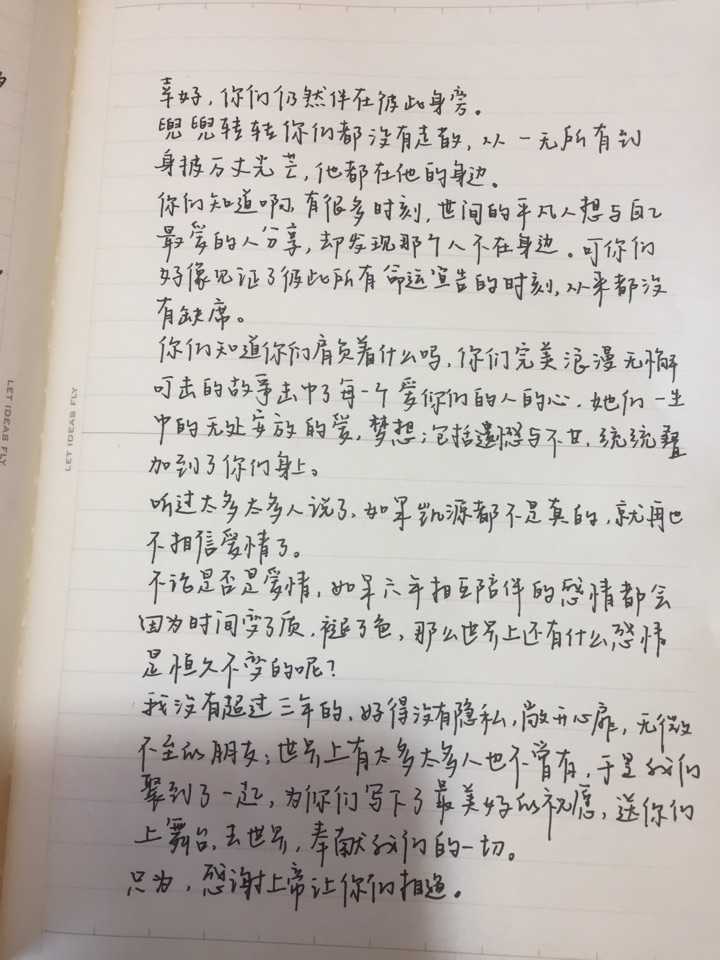 幸好，你们仍然伴在彼此身旁。
兜兜转转你们都没有走散，从一无所有到
身披万丈光芒，他都在他的身边。
你们知道啊，有很多时刻，世间的平凡人想与自己
最爱的人分享，却发现那个人不在身边。可你们
好像见证了彼此所有命运宣告的时刻，从来都没
有缺席。
你们知道你们肩负着什么吗，你们完美浪漫无懈
可击的故事击中了每一个爱你们的人的心，她们一生
中的无处安放的爱，梦想；包括遗憾与不甘，统统叠
加到了你们身上。
听过太多太多人说了，如果凯源都不是真的，就再也
不相信爱情了。
不论是否是爱情，如果六年相互陪伴的感情都会
因为时间变了质，褪了色，那么世界上还有什么感情
是恒久不变的呢？
我没有超过三年的，好得没有隐私，敞开心扉，无微
不至的朋友；世界上有太多太多人也不曾有，于是我们
聚到了一起，为你们写下了最美好的祝愿，送你们
上舞台，去世界，奉献我们的一切。
只为，感谢上帝让你们相遇。
LET IDEAS FLY
LET IDEAS FLY